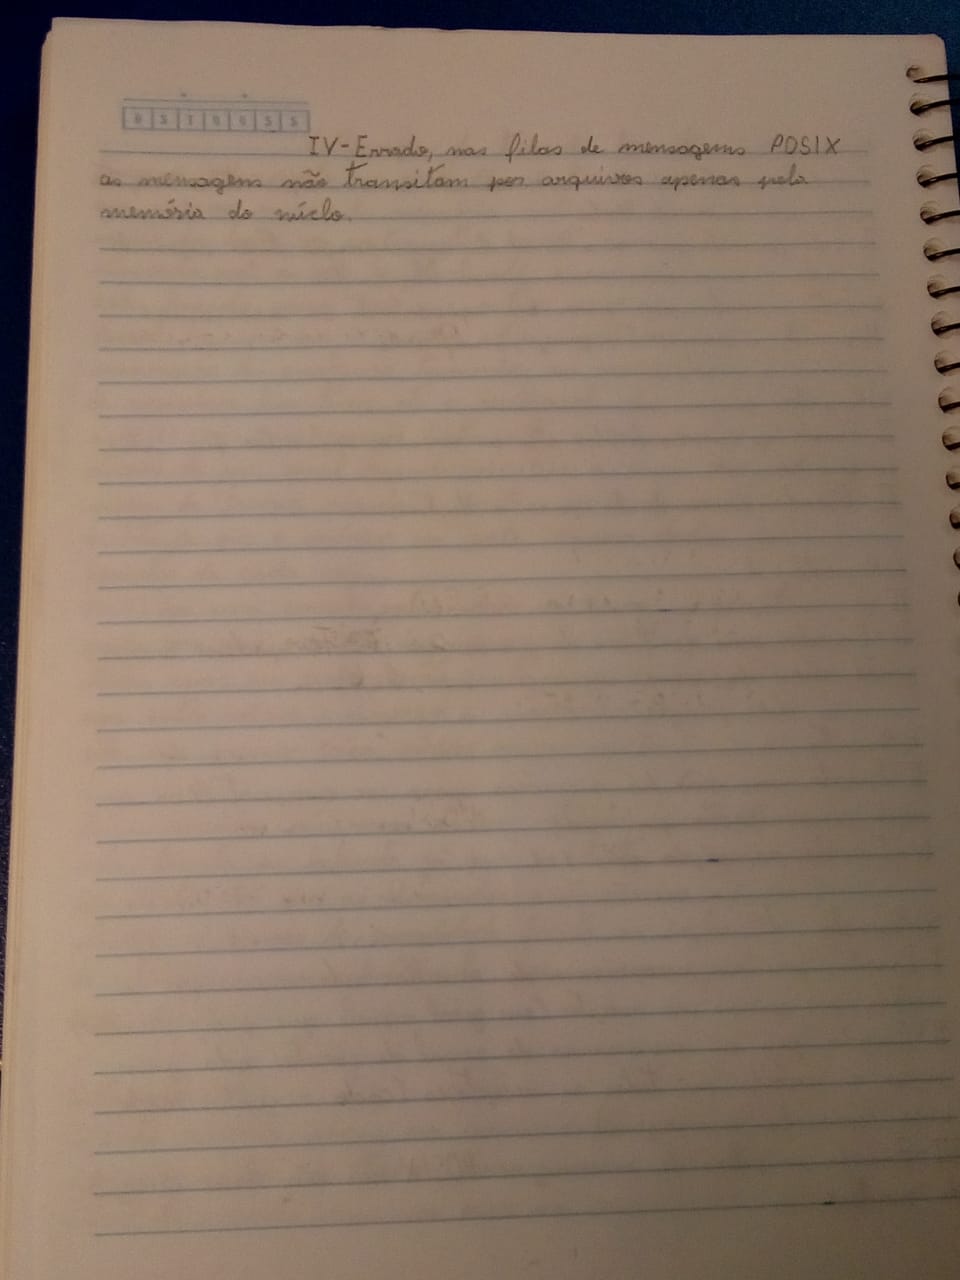 D S T Q Q S S
IV-Errado, nas filas de mensagens POSIX
as mensagens não transitam por arquivos apenas pela
memória do núclo.